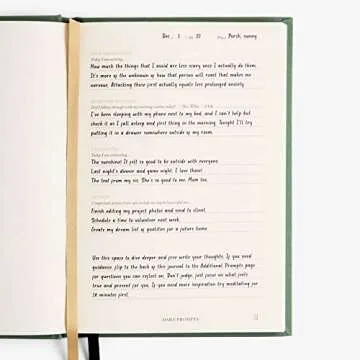 Dec. 1 20 Porch, sunny
Today I am noticing...
How much the things that I avoid are less scary once I actually do them.
It's more of the unknown of how that person will react that makes me
nervous. Attacking these first actually equals less prolonged anxiety.
I've been sleeping with my phone next to my bed, and I can't help but
check it as I fall asleep and first thing in the morning. Tonight I'll try
putting it in a drawer somewhere outside of my room.
The sunshine! It felt so good to be outside with everyone.
Last night's dinner and game night. I love them!
The text from my sis. She's so good to me. Mom too.
Finish editing my project photos and send to client.
Schedule a time to volunteer next week.
Create my dream list of qualities for a future home.
Use this space to dive deeper and free write your thoughts. If you need
guidance flip to the back of this journal to the Additional Prompts page
for questions you can reflect on. Don't judge, just focus on what feels
true and present for you. If you need more inspiration try meditating for
10 minutes first.
DAILY PROMPTS